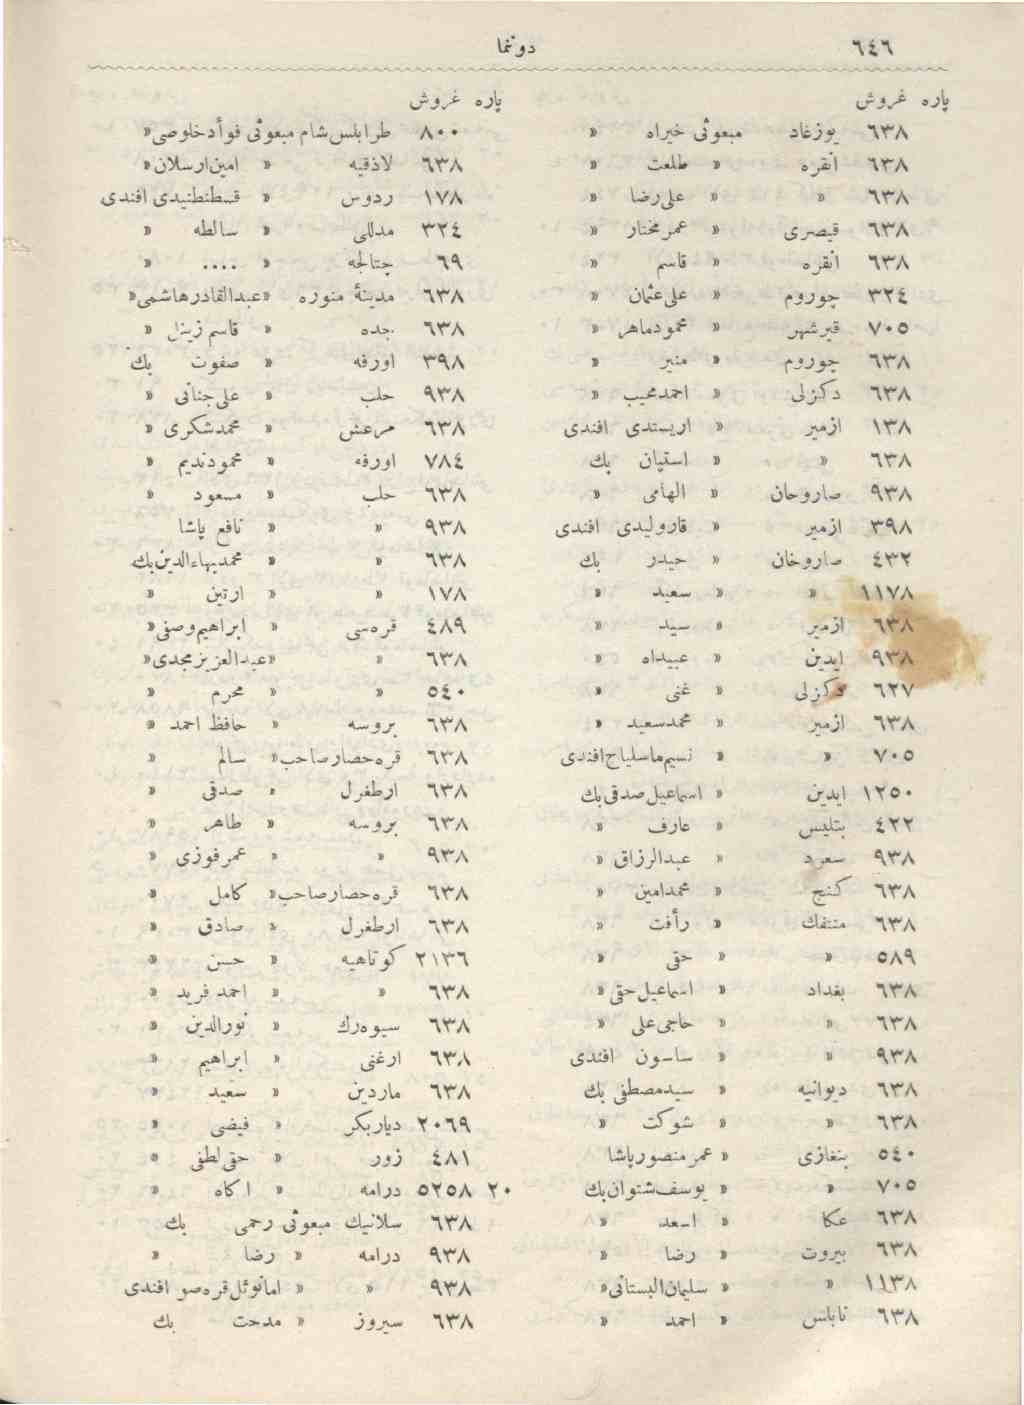 ٦٤٦ دوننما
پاره غروش
٦٣٨ یوزغاد مبعوثی خیراه »
٦٣٨ انقره » طلعت »
٦٣٨ » » علی رضا »
٦٣٨ قیصری » عمر مختار »
٦٣٨ انقره » قاسم »
٣٢٤ چوروم » علی عثمان »
٧٠٥ قیرشهر » محمود ماهر »
٦٣٨ چوروم » منیر »
٦٣٨ دکزلی » احمد محیب »
١٣٨ ازمیر » اریستدی افندی
٦٣٨ » » استپان بك
٩٣٨ صاروخان » الهامی »
٣٩٨ ازمیر » قارولیدی افندی
٤٣٢ صاروخان » حیدر بك
١١٧٨ » » سعید »
٦٣٨ ازمیر » سید »
٩٣٨ ایدین » عبیداه »
٦٢٧ دکزلی » غنی »
٦٣٨ ازمیر » محمد سعید »
٧٠٥ » » نسیم ماسلیاح افندی
١٢٥٠ ایدین » اسماعیل صدقی بك
٤٢٢ بتلیس » عارف »
٩٣٨ سعرد » عبدالرزاق »
٦٣٨ کنج » محمدامین »
٦٣٨ منتفك » رأفت »
٥٨٩ » » حقی »
٦٣٨ بغداد » اسماعیل حقی »
٦٣٨ » » حاجی علی »
٩٣٨ » » ساسون افندی
٦٣٨ دیوانیه » سید مصطفی بك
٦٣٨ » » شوکت »
٥٤٠ بنغازی » عمر منصور پاشا
٧٠٥ » » یوسف شتوان بك
٦٣٨ عکا » اسعد »
٦٣٨ بیروت » رضا »
١١٣٨ » » سلیمان البستانی »
٦٣٨ نابلس » احمد »
پاره غروش
٨٠٠ طرابلس شام مبعوثی فوأد خلوصی »
٦٣٨ لاذقیه » امین ارسلان »
١٧٨ ردوس » قسطنطنیدی افندی
٣٢٤ مدللی » سالطه »
٦٩ چتالجه » .... »
٦٣٨ مدینهٔ منوره » عبدالقادر هاشمی »
٦٣٨ جده » قاسم زینل »
٣٩٨ اورفه » صفوت بك
٩٣٨ حلب » علی جنانی »
٦٣٨ مرعش » محمد شکری »
٧٨٤ اورفه » محمود ندیم »
٦٣٨ حلب » مسعود »
٩٣٨ » » نافع پاشا
٦٣٨ » » محمد بهاءالدین بك
١٧٨ » » ارتین »
٤٨٩ قره سی » ابراهیم وصفی »
٦٣٨ » » عبدالعزیز مجدی »
٥٤٠ » » محرم »
٦٣٨ بروسه » حافظ احمد »
٦٣٨ قره حصار صاحب » سالم »
٦٣٨ ارطغرل » صدقی »
٦٣٨ بروسه » طاهر »
٩٣٨ » » عمر فوزی »
٦٣٨ قره حصار صاحب » کامل »
٦٣٨ ارطغرل » صادق »
٢١٣٦ کوتاهیه » حسن »
٦٣٨ » » احمد فرید »
٦٣٨ سیوه رك » نورالدین »
٦٣٨ ارغنی » ابراهیم »
٦٣٨ ماردین » سعید »
٢٠٦٩ دیاربکر » فیضی »
٤٨١ زور » حقی لطفی »
٢٠ ٥٢٥٨ درامه » اکاه »
٦٣٨ سلانیك مبعوثی رحمی بك
٩٣٨ درامه » رضا »
٩٣٨ » » امانوئل قره صو افندی
٦٣٨ سیروز » مدحت بك